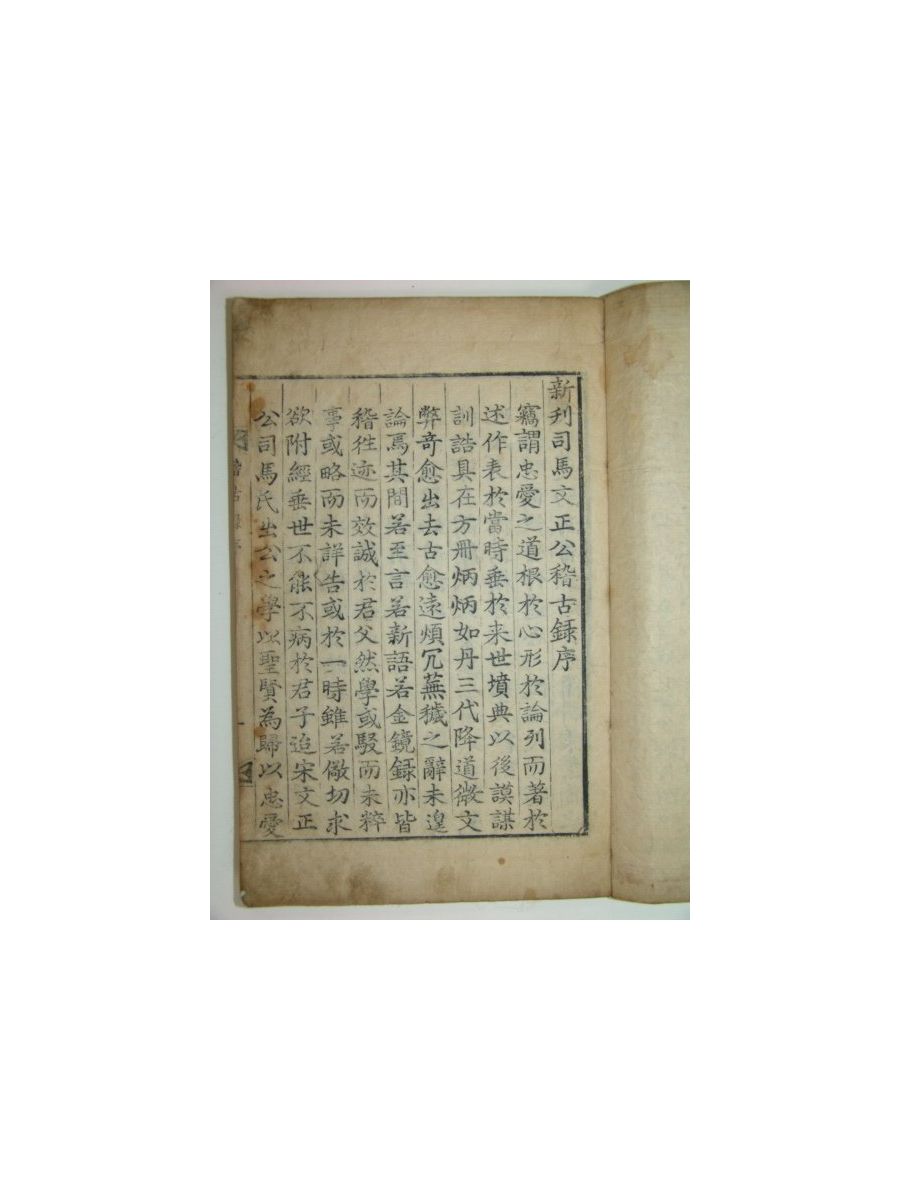 新刋司馬文正公稽古錄序
竊謂忠愛之道根於心形於論列而著於
述作表於當時垂於来世墳典以後謨謀
訓誥具在方冊炳炳如丹三代降道微文
弊竒愈出去古愈遠煩冗蕪穢之辭未遑
論焉其間若至言若新語若金鏡録亦皆
稽徃迹而效誠於君父然學或駁而未粹
事或略而未詳告或於一時雖若儆切求
欲附經垂世不能不病於君子迨宋文正
公司馬氏出公之學以聖賢為歸以忠愛